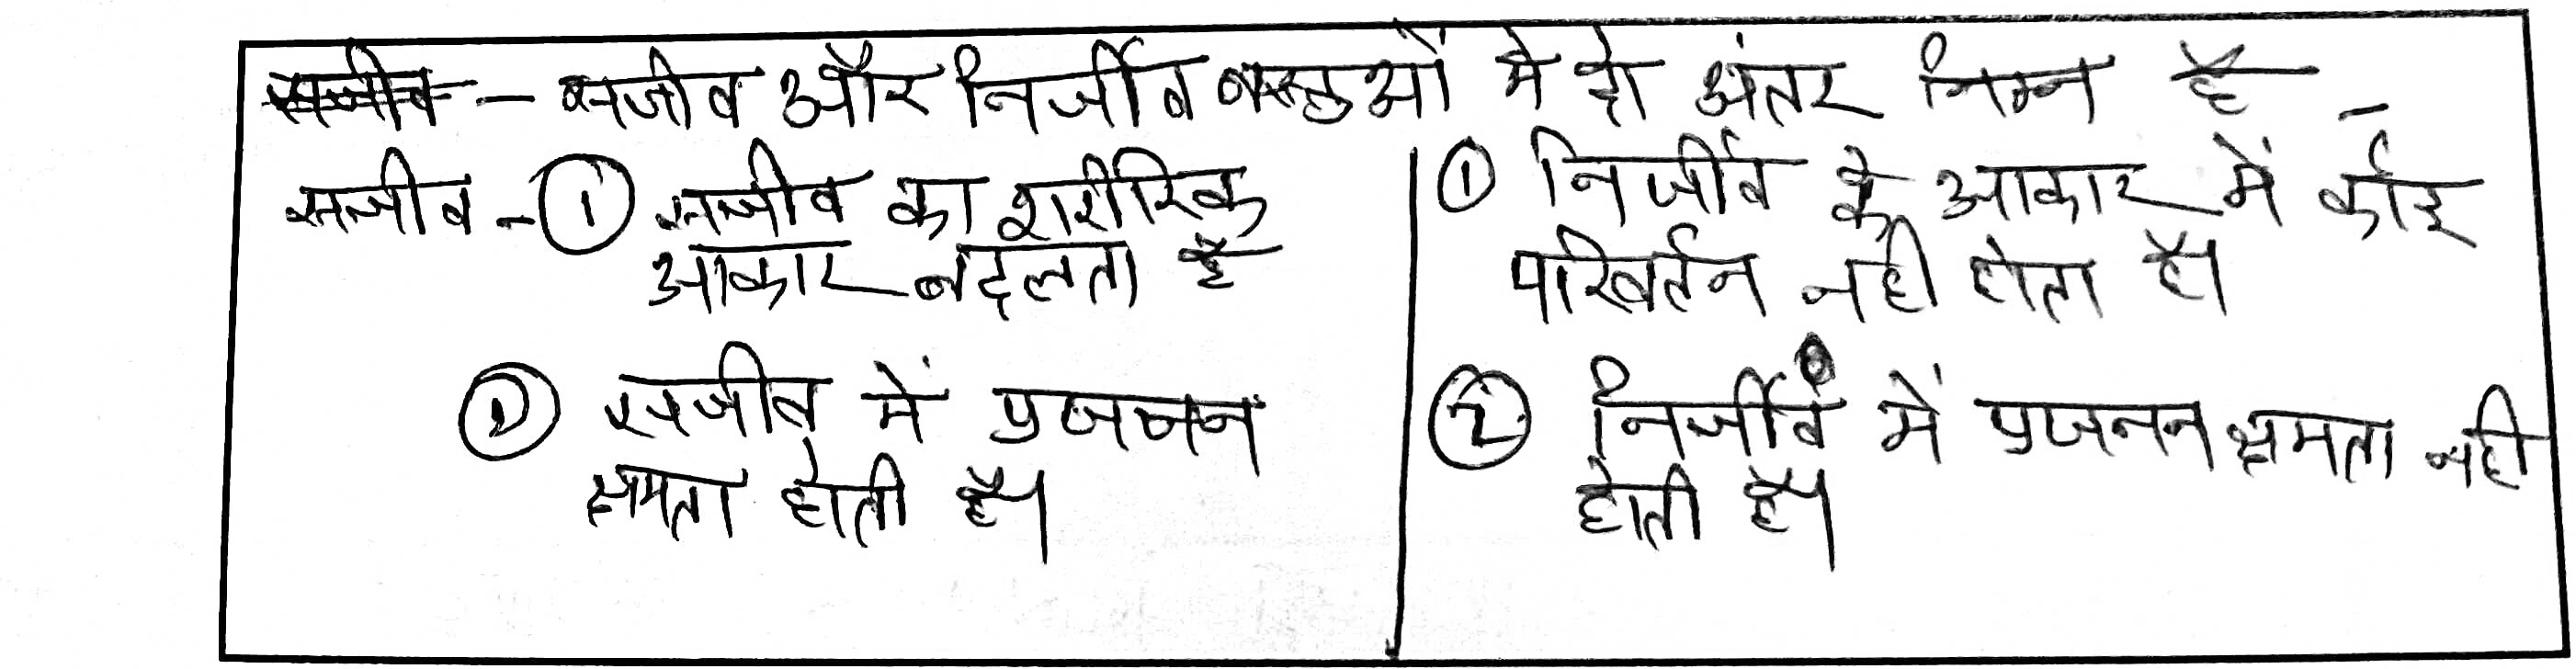 सजीव - सजीव और निर्जीव वस्तुओं मे दो अंतर निम्न है -
सजीव - ① सजीव का शारीरिक
आकार बदलता है
② सजीव में प्रजनन
क्षमता होती है।
① निर्जीव के आकार में कोई
परिवर्तन नही होता है।
② निर्जीव में प्रजनन क्षमता नही
होती है।